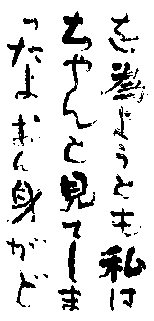 を為ようとも私は
ちやんと見てしま
つたよおん身がど